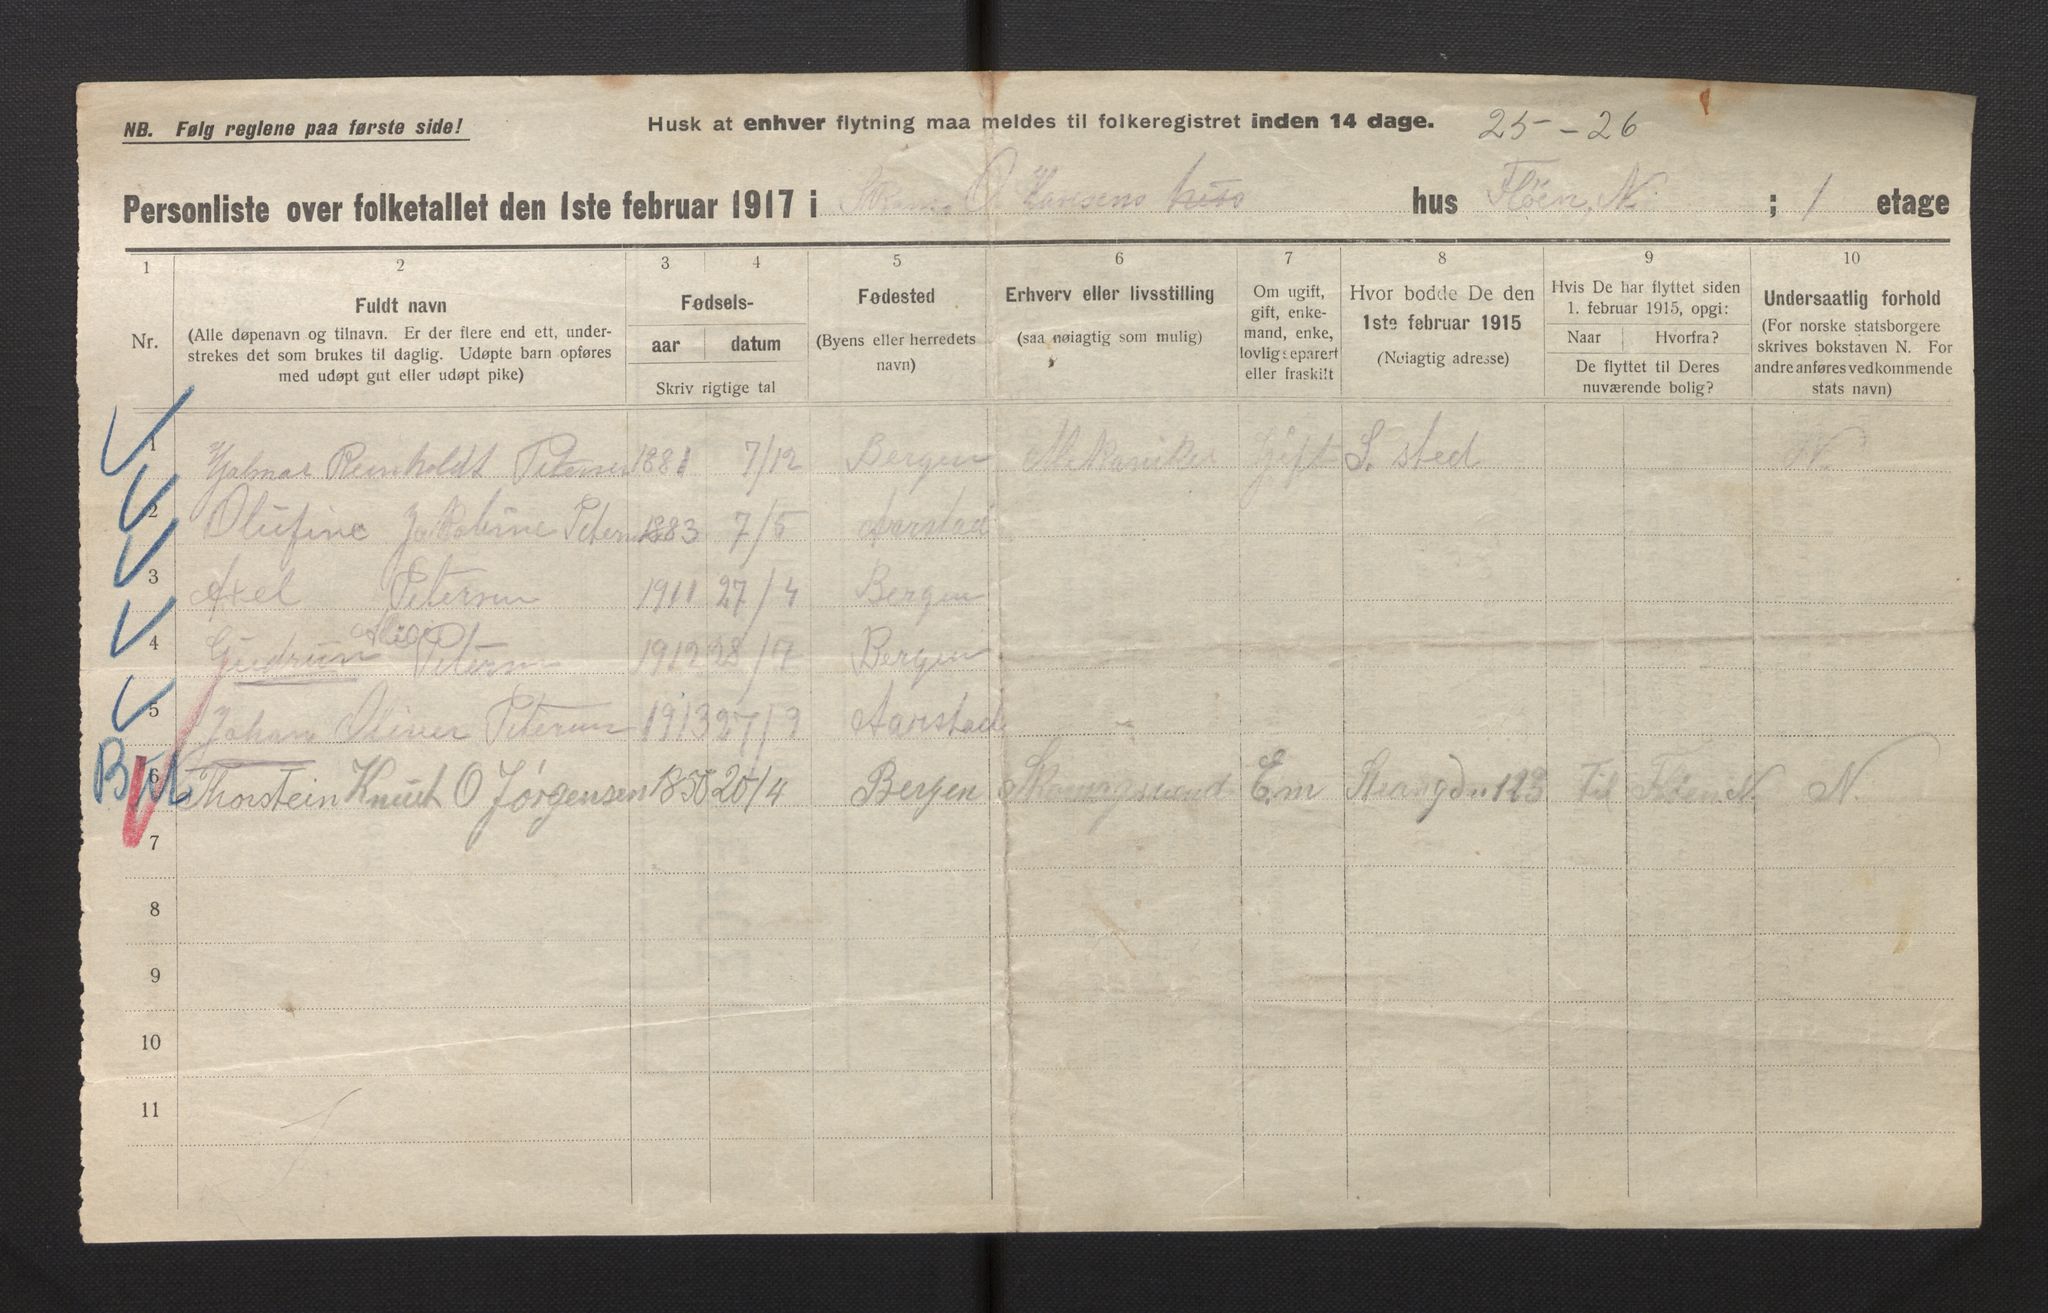 NB. Følg reglene paa første side!
Husk at enhver flytning maa meldes til folkeregistret inden 14 dage. 25 – 26
Personliste over folketallet den 1ste februar 1917 i O Hansens hus hus Fløen N. ; 1 etage
1 2 3 4 5 6 7 8 9 10
Nr.
Fuldt navn
(Alle døpenavn og tilnavn. Er der flere end ett, under-
strekes det som brukes til daglig. Udøpte barn opføres
med udøpt gut eller udøpt pike)
Fødsels-
aar datum
Skriv rigtige tal
Fødested
(Byens eller herredets
navn)
Erhverv eller livsstilling
(saa nøiagtig som mulig)
Om ugift,
gift, enke-
mand, enke,
lovlig separert
eller fraskilt
Hvor bodde De den
1ste februar 1915
(Nøiagtig adresse)
Hvis De har flyttet siden
1. februar 1915, opgi:
Naar Hvorfra?
De flyttet til Deres
nuværende bolig?
Undersaatlig forhold
(For norske statsborgere
skrives bokstaven N. For
andre anføres vedkommende
stats navn)
1 Hjalmar Reinholdt Petersen 1881 7/12 Bergen Mekaniker Gift S. sted N.
2 Olufine Jakobine Petersen 1883 7/5 Aarstad
3 Axel Petersen 1911 27/4 Bergen
4 Gudrun Petersen 1912 28/7 Bergen
5 Johan Oliver Petersen 1913 27/9 Aarstad
6 Thorstein Knut O Jørgensen 20/4 Bergen E.m 123 Til Fløen N. N.
7
8
9
10
11